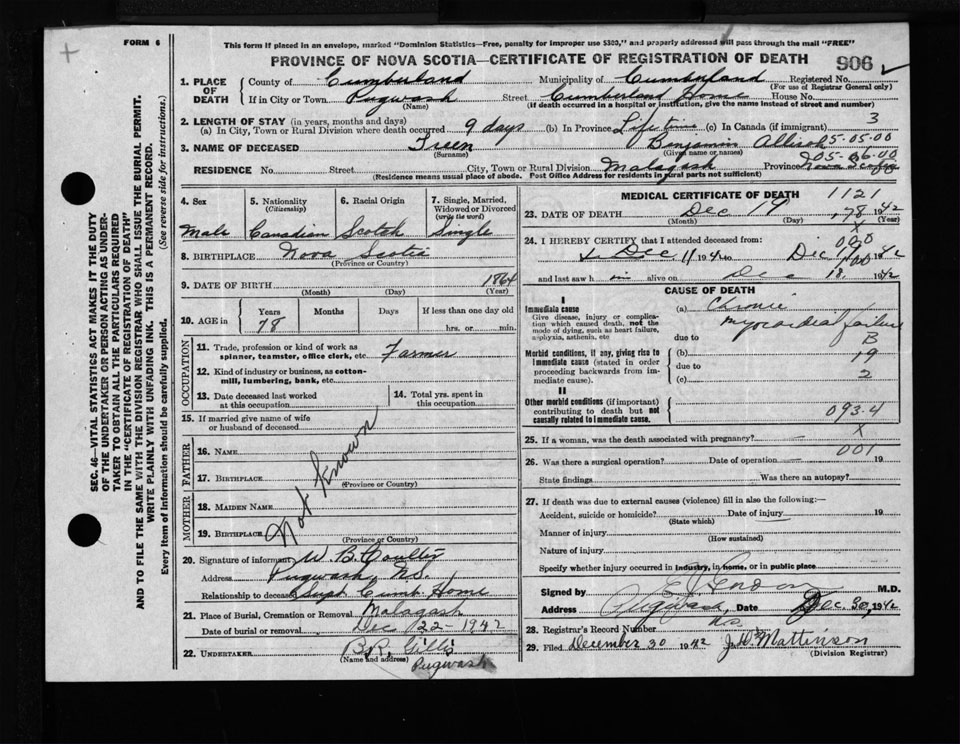 FORM 6
This form if placed in an envelope, marked "Dominion Statistics—Free, penalty for improper use $300," and properly addressed will pass through the mail "FREE"
PROVINCE OF NOVA SCOTIA—CERTIFICATE OF REGISTRATION OF DEATH
906
1. PLACE OF DEATH
County of Cumberland Municipality of Cumberland Registered No.
(For use of Registrar General only)
If in City or Town Pugwash Street Cumberland Home House No.
(Name) (If death occurred in a hospital or institution, give the name instead of street and number)
2. LENGTH OF STAY (in years, months and days) 3
(a) In City, Town or Rural Division where death occurred 9 days (b) In Province Lifetime (c) In Canada (if immigrant)
3. NAME OF DECEASED Treen Benjamin Allison 05-05-00
(Surname) (Given name or names)
05-06-00
RESIDENCE No. Street City, Town or Rural Division Malagash Province Nova Scotia
(Residence means usual place of abode. Post Office Address for residents in rural parts not sufficient)
4. Sex Male
5. Nationality (Citizenship) Canadian
6. Racial Origin Scotch
7. Single, Married, Widowed or Divorced (write the word) Single
8. BIRTHPLACE Nova Scotia
(Province or Country)
9. DATE OF BIRTH 1864
(Month) (Day) (Year)
10. AGE in Years Months Days If less than one day old
78 hrs. or min.
OCCUPATION
11. Trade, profession or kind of work as spinner, teamster, office clerk, etc. Farmer
12. Kind of industry or business, as cotton-mill, lumbering, bank, etc.
13. Date deceased last worked at this occupation
14. Total yrs. spent in this occupation
15. If married give name of wife or husband of deceased
FATHER
16. NAME
17. BIRTHPLACE
(Province or Country)
MOTHER
18. MAIDEN NAME
19. BIRTHPLACE
(Province or Country)
Not Known
20. Signature of informant W. B. Coulter
Address Pugwash, N.S.
Relationship to deceased Supt Cumb. Home
21. Place of Burial, Cremation or Removal Malagash
Date of burial or removal Dec 22 - 1942
22. UNDERTAKER B.R. Gillis
(Name and address)
Pugwash
MEDICAL CERTIFICATE OF DEATH 1121
23. DATE OF DEATH Dec 19 78 1942
(Month) (Day) (Year)
X
24. I HEREBY CERTIFY that I attended deceased from: 000
Dec. 11 1942 to Dec 19 1942
and last saw him alive on Dec 18 1942
CAUSE OF DEATH
I
Immediate cause
Give disease, injury or complication which caused death, not the mode of dying, such as heart failure, asphyxia, asthenia, etc
(a) Chronic
myocardial failure
due to B
Morbid conditions, if any, giving rise to immediate cause (stated in order proceeding backwards from immediate cause).
(b) 19
due to
(c) 2
II
Other morbid conditions (if important) contributing to death but not causally related to immediate cause.
093.4
25. If a woman, was the death associated with pregnancy? X
001
26. Was there a surgical operation? Date of operation 19
State findings Was there an autopsy?
27. If death was due to external causes (violence) fill in also the following:—
Accident, suicide or homicide? Date of injury 19
(State which)
Manner of injury
(How sustained)
Nature of injury
Specify whether injury occurred in industry, in home, or in public place
Signed by M.D.
Address Pugwash, Date Dec. 30, 1942
N.S.
28. Registrar's Record Number
29. Filed December 30 1942 Mattinson
(Division Registrar)
SEC. 46—VITAL STATISTICS ACT MAKES IT THE DUTY
OF THE UNDERTAKER OR PERSON ACTING AS UNDER-
TAKER TO OBTAIN ALL THE PARTICULARS REQUIRED
IN THE "CERTIFICATE OF REGISTRATION OF DEATH"
AND TO FILE THE SAME WITH THE DIVISION REGISTRAR WHO SHALL ISSUE THE BURIAL PERMIT.
WRITE PLAINLY WITH UNFADING INK. THIS IS A PERMANENT RECORD.
Every item of information should be carefully supplied. (See reverse side for instructions.)